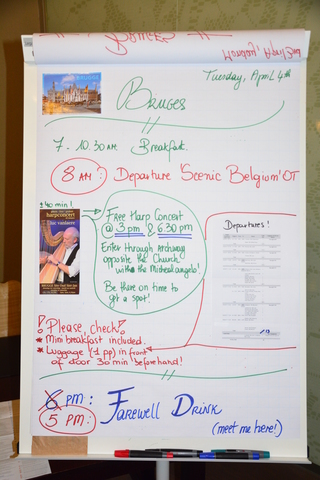 Tuesday, April 4th
Bruges
7 - 10.30 AM Breakfast.
8 AM: Departure 'Scenic Belgium' OT
± 40 min!
harpconcert
Luc vanlaere
Free Harp Concert
@ 3 pm & 6.30 pm
Enter through Archway
opposite the Church
with the Michealangelo!
Be there on time to
get a spot!
Departures!
! Please, check!
* Mini breakfast included.
* Luggage (1 pp) in front
of door 30 min beforehand!
6 PM:
5 PM: Farewell Drink
(meet me here!)